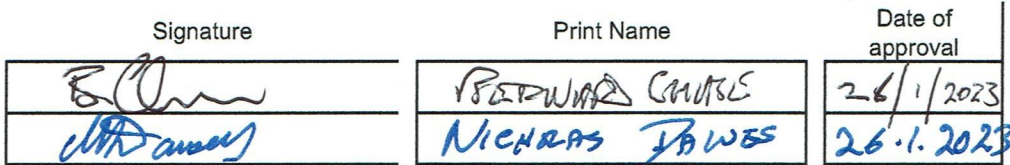 Signature Print Name Date of approval
BERNARD CHASE 26/1/2023
NICHOLAS DAWES 26.1.2023